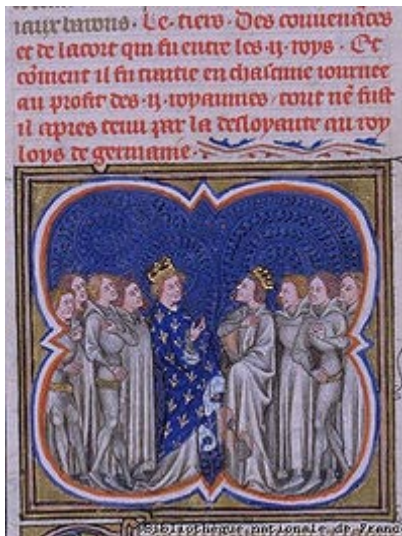 iaux barons. Le tiers. Des convenāces
et de lacort qui fu entre les .ij. roys. Et
cōment il fu traitie en chascune iournee
au profit des .ij. royaumes tout ne fust
il apres tenu par la desloyaute au roy
loys de germanie.
Bibliothèque nationale de France